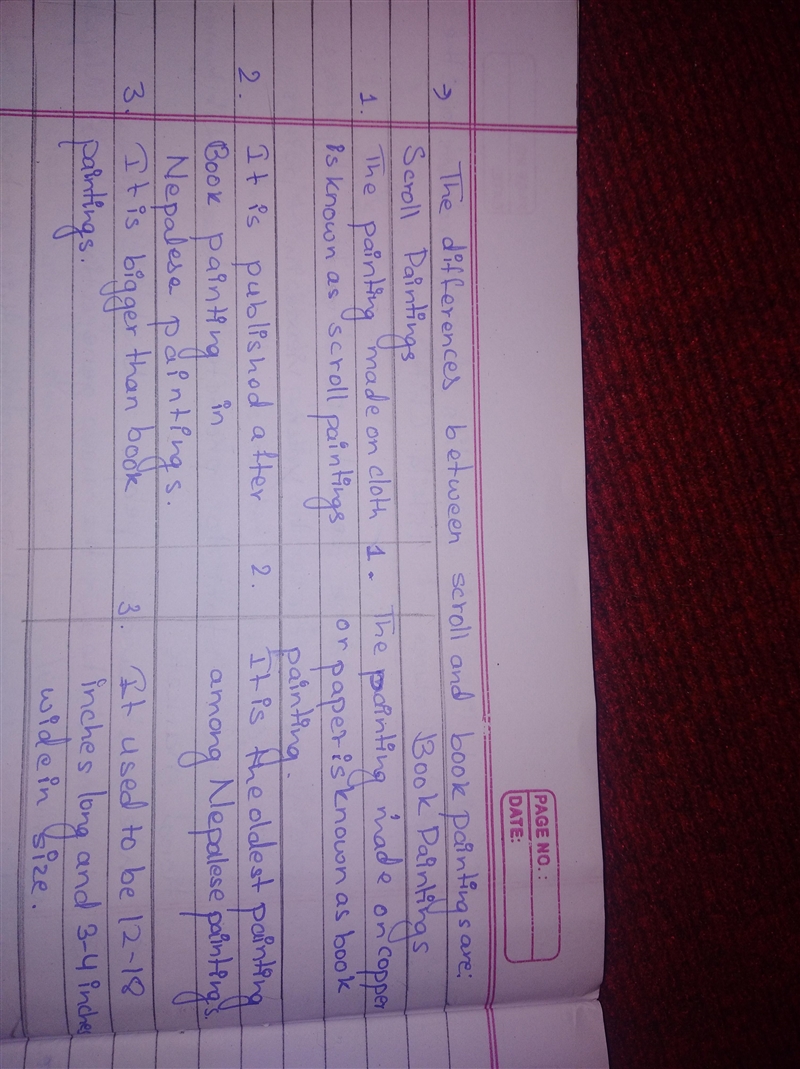 PAGE NO.:
DATE:
→ The differences between scroll and book paintings are:
Scroll Paintings Book Paintings
1. The painting made on cloth 1. The painting made on copper
is known as scroll paintings or paper is known as book
painting.
2. It is published after 2. It is the oldest painting
Book painting in among Nepalese paintings.
Nepalese paintings.
3. It is bigger than book 3. It used to be 12-18
paintings. inches long and 3-4 inches
wide in size.